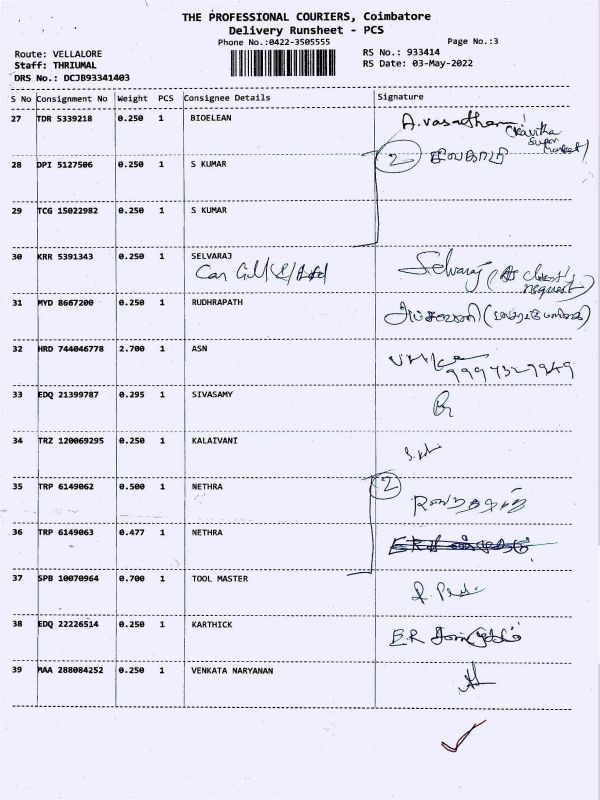 THE PROFESSIONAL COURIERS, Coimbatore
Delivery Runsheet - PCS
Phone No.:0422-3505555
Page No.:3
Route: VELLALORE
RS No.: 933414
Staff: THRIUMAL
RS Date: 03-May-2022
DRS No.: DCJB93341403
S No Consignment No Weight PCS Consignee Details Signature
27 TDR 5339218 0.250 1 BIOELEAN A.vasantham
(Kavitha
Super
Market)
28 DPI 5127506 0.250 1 S KUMAR 2
29 TCG 15022982 0.250 1 S KUMAR
30 KRR 5391343 0.250 1 SELVARAJ Selvaraj (As client
request)
31 MYD 8667200 0.250 1 RUDHRAPATH
32 HRD 744046778 2.700 1 ASN
33 EDQ 21399787 0.295 1 SIVASAMY
34 TRZ 120069295 0.250 1 KALAIVANI
35 TRP 6149062 0.500 1 NETHRA 2
36 TRP 6149063 0.477 1 NETHRA
37 SPB 10070964 0.700 1 TOOL MASTER
38 EDQ 22226514 0.250 1 KARTHICK E.R
39 MAA 288084252 0.250 1 VENKATA NARYANAN